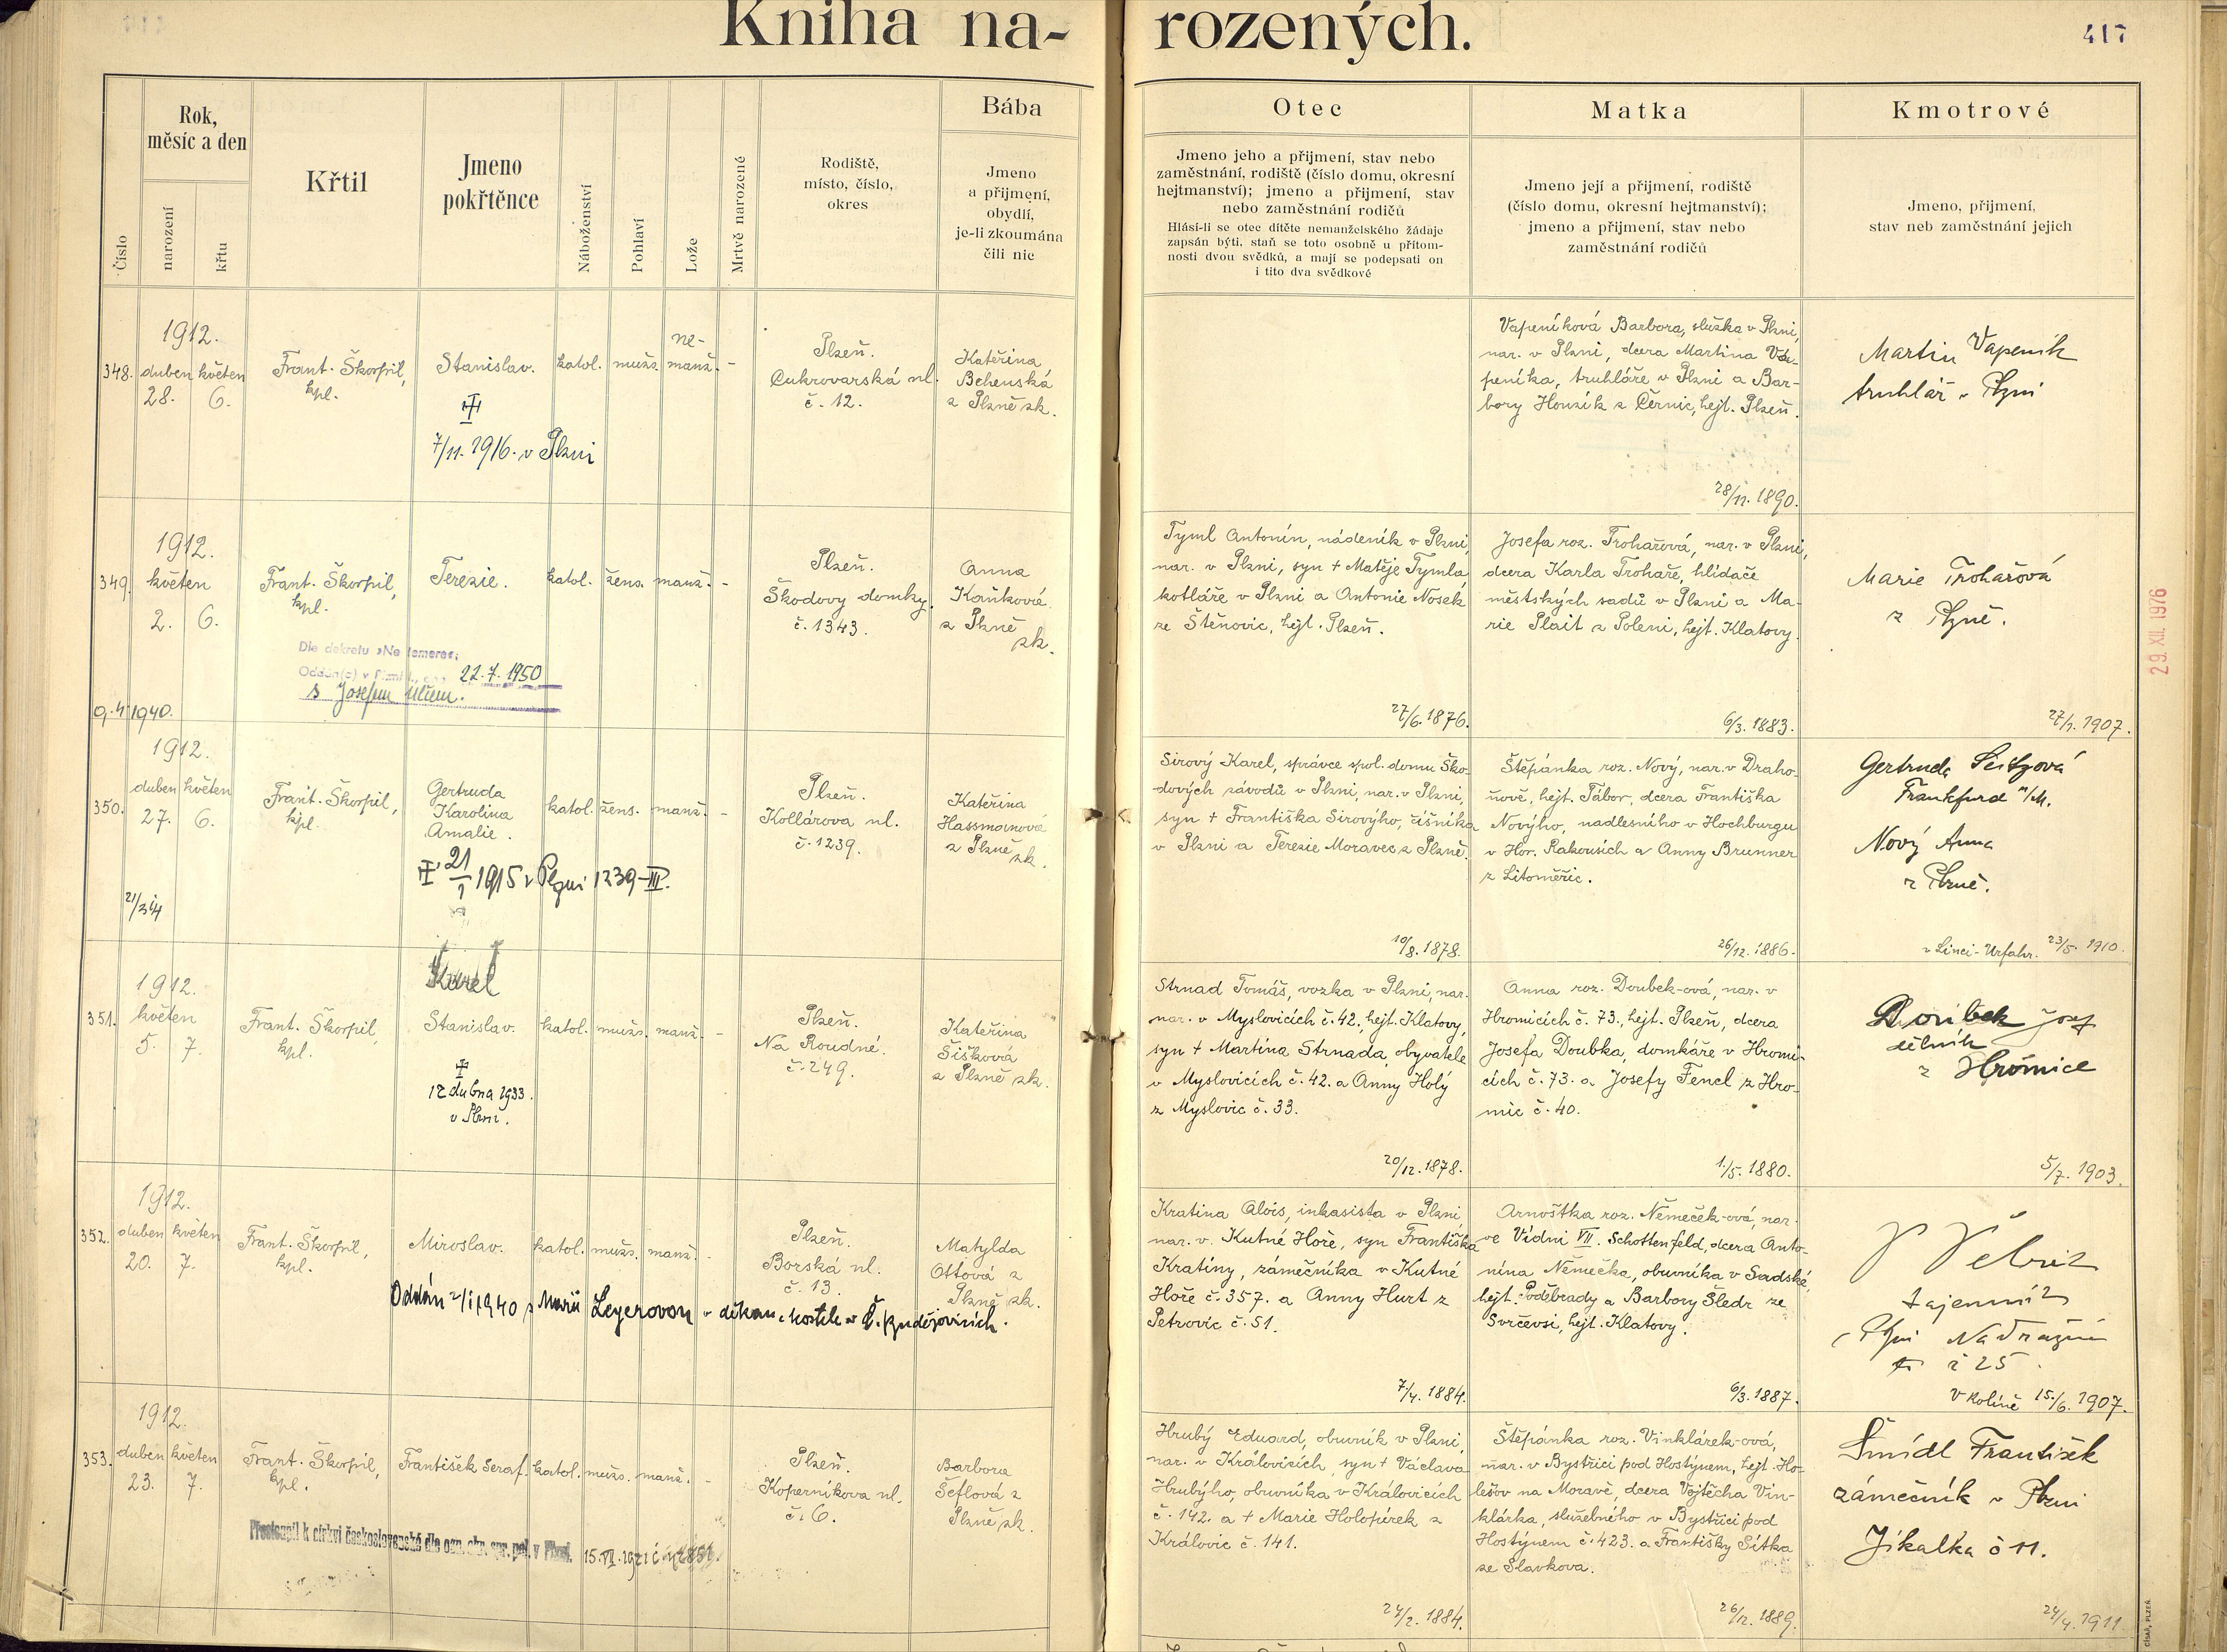 Kniha na-
rozených.
417
Číslo
Rok,
měsíc a den
narození
křtu
Křtil
Jmeno
pokřtěnce
Náboženství
Pohlaví
Lože
Mrtvě narozené
Rodiště,
místo, číslo,
okres
Bába
Jmeno
a přijmení,
obydlí,
je-li zkoumána
čili nic
Otec
Jmeno jeho a přijmení, stav nebo
zaměstnání, rodiště (číslo domu, okresní
hejtmanství); jmeno a přijmení, stav
nebo zaměstnání rodičů
Hlásí-li se otec dítěte nemanželského žádaje
zapsán býti, staň se toto osobně u přítom-
nosti dvou svědků, a mají se podepsati on
i tito dva svědkové
Matka
Jmeno její a přijmení, rodiště
(číslo domu, okresní hejtmanství);
jmeno a přijmení, stav nebo
zaměstnání rodičů
Kmotrové
Jmeno, přijmení,
stav neb zaměstnání jejich
348.
1912.
duben květen
28. 6.
Frant. Škorpil,
kpl.
Stanislav.
7/11. 1916. v Plzni
katol.
mužs.
ne-
manž.
-
Plzeň.
Cukrovarská ul.
č. 12.
Kateřina
Behenská
z Plzně zk.
Vapeníková Barbora, služka v Plzni,
nar. v Plzni, dcera Martina Va-
peníka, truhláře v Plzni a Bar-
bory Houzík z Černic, hejt. Plzeň.
28/11. 1890.
Martin Vapeník
truhlář v Plzni
349.
1912.
květen
2. 6.
1940.
Frant. Škorpil,
kpl.
Terezie.
Dle dekretu »Ne temere«,
Oddán(a) v Plzni 22. 7. 1950
s Josefem
katol.
žens.
manž.
-
Plzeň.
Škodovy domky.
č. 1343.
Anna
Kaňková
z Plzně
zk.
Tyml Antonín, nádeník v Plzni,
nar. v Plzni, syn + Matěje Tymla,
kotláře v Plzni a Antonie Nosek
ze Štěnovic, hejt. Plzeň.
27/6. 1876.
Josefa roz. Trohařová, nar. v Plzni,
dcera Karla Trohaře, hlídače
městských sadů v Plzni a Ma-
rie Plait z Poleni, hejt. Klatovy.
6/3. 1883.
Marie Trohařová
z Plzně.
27/1. 1907.
29. XII. 1976
350.
1912.
duben květen
27. 6.
21/3 14
Frant. Škorpil,
kpl.
Gertruda
Karolina
Amalie.
21/1 1915 v Plzni 1239-III.
katol.
žens.
manž.
-
Plzeň.
Kollárova ul.
č. 1239.
Kateřina
Hassmanová
z Plzně zk.
Sirový Karel, správce spol. domu Ško-
dových závodů v Plzni, nar. v Plzni,
syn + Františka Sirovýho, číšníka
v Plzni a Terezie Moravec z Plzně.
10/8. 1878.
Štěpánka roz. Nový, nar. v Draho-
ňově, hejt. Tábor, dcera Františka
Novýho, nadlesního v Hochburgu
v Hor. Rakousích a Anny Brunner
z Litoměřic.
26/12. 1886.
Gertruda Seitzová
Frankfurd a/M.
Nový Anna
z Plzně.
v Linci-Urfahr. 23/5. 1910.
351.
1912.
květen
5. 7.
Frant. Škorpil,
kpl.
Karel
Stanislav.
12 dubna 1933.
v Plzni.
katol.
mužs.
manž.
-
Plzeň.
Na Roudné.
č. 249.
Kateřina
Šišková
z Plzně zk.
Strnad Tomáš, vozka v Plzni, nar.
nar. v Myslovicích č. 42., hejt. Klatovy,
syn + Martina Strnada, obyvatele
v Myslovicích č. 42. a Anny Holý
z Myslovic č. 33.
20/12. 1878.
Anna roz. Doubek-ová, nar. v
Hromicích č. 73., hejt. Plzeň, dcera
Josefa Doubka, domkáře v Hromi-
cích č. 73. a Josefy Fencl z Hro-
mic č. 40.
1/5. 1880.
Doubek Josef
dělník
z Hromice
5/7. 1903.
352.
1912.
duben květen
20. 7.
Frant. Škorpil,
kpl.
Miroslav.
Oddán 2/I 1940 s Marií Legerovou v děkan. kostele v Č. Budějovicích.
katol.
mužs.
manž.
-
Plzeň.
Borská ul.
č. 13.
Matylda
Ottová z
Plzně zk.
Kratina Alois, inkasista v Plzni,
nar. v. Kutné Hoře, syn Františka
Kratiny, zámečníka v Kutné
Hoře č. 357. a Anny Hurt z
Petrovic č. 51.
7/4. 1884.
Arnoštka roz. Němeček-ová, nar.
ve Vídni VII. Schottenfeld, dcera Anto-
nína Němečka, obuvníka v Sadské,
hejt. Poděbrady a Barbory Šledr ze
Svrčevsi, hejt. Klatovy.
6/3. 1887.
tajemník
Plzni Nádražní
č 25
v Kolíně 15./6. 1907.
353.
1912.
duben květen
23. 7.
Frant. Škorpil,
kpl.
František Seraf.
Přestoupil k církvi československé dle ozn. okr. spr. pol. v Plzni. 15. VI. 1921 č.
katol.
mužs.
manž.
-
Plzeň.
Koperníkova ul.
č. 6.
Barbora
Šeflová z
Plzně zk.
Hrubý Eduard, obuvník v Plzni,
nar. v Královicích, syn + Václava
Hrubýho, obuvníka v Královicích
č. 142. a + Marie Holopírek z
Královic č. 141.
24/2. 1884.
Štěpánka roz. Vinklárek-ová,
nar. v Bystřici pod Hostýnem, hejt. Ho-
lešov na Moravě, dcera Vojtěcha Vin-
klárka, služebného v Bystřici pod
Hostýnem č. 423. a Františky Sítka
ze Slavkova.
26/12. 1889.
Šmídl František
zámečník v Plzni
Jikalka č 11.
24/4. 1911.
CÍSAŘ, PLZEŇ.